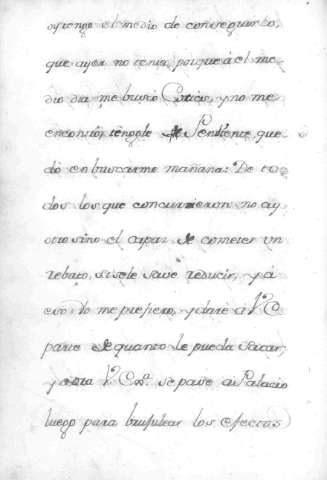 oy tengo el medio de conseguirlo,
que ayer no tenia, porque á el me
dio dia me buscó Cortes, y no me
encontró; tengole de Pendiente, que
dó en buscarme mañana: De to
dos los que concurrieron no ay
otro sino el capaz de cometer un
rebato, si se le save reducir, y á
eso Yo me prefiero, y dare á V.E.
parte de quanto le pueda sacar,
y V. Ex.ª se pase á Palacio
luego para brujulear los efectos